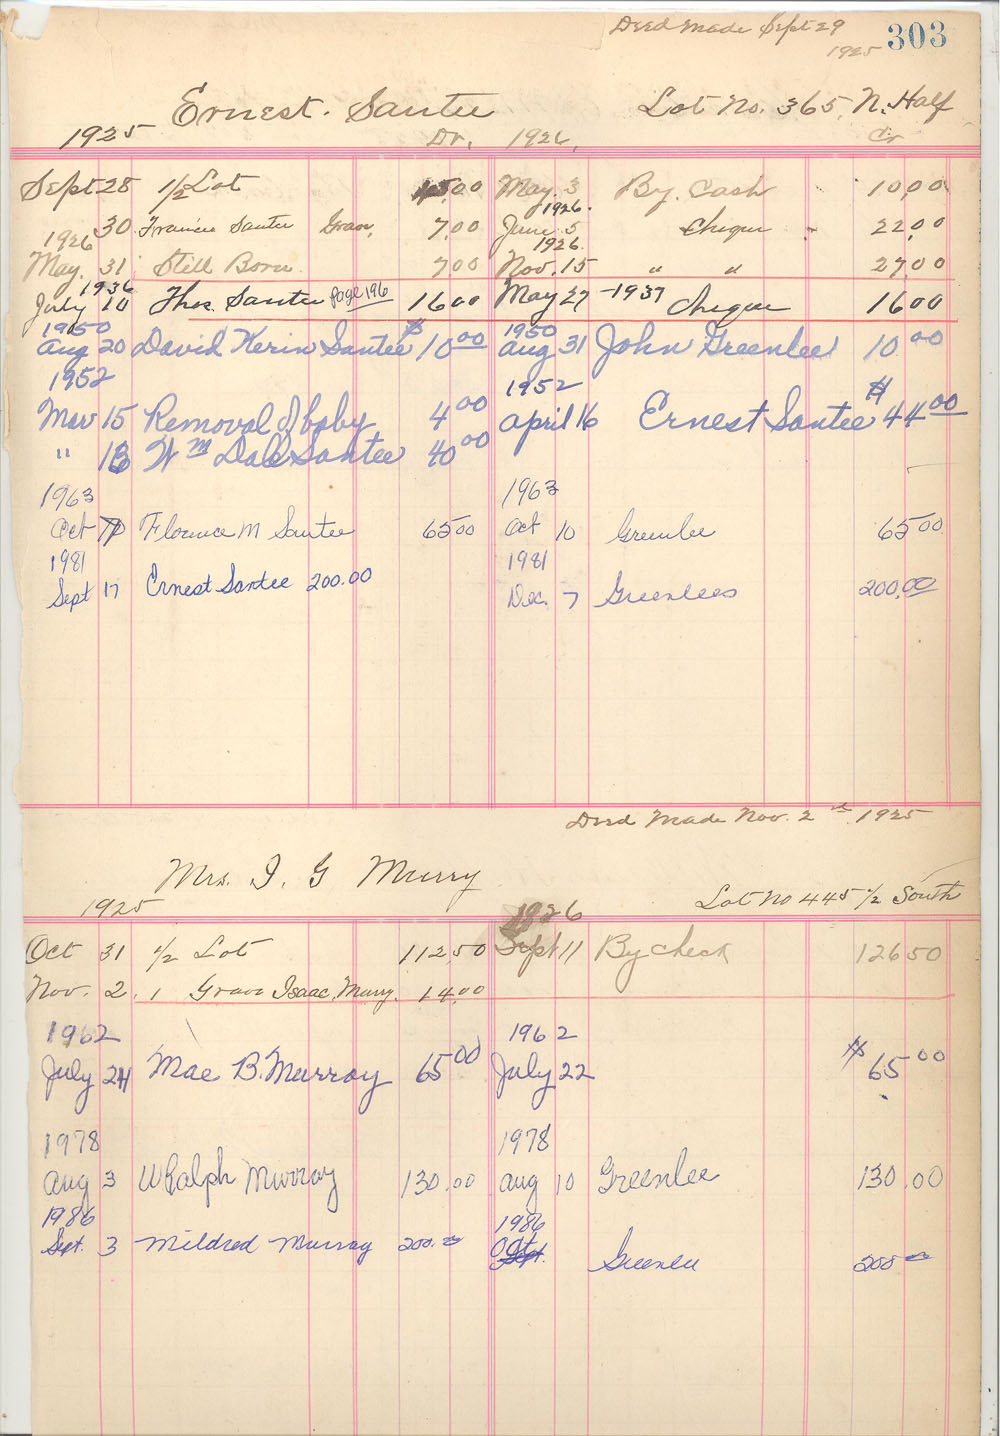 Deed Made Sept 29
1925 303
Ernest. Santee Lot No. 365, N. Half
1925 Dr. 1926, Cr
Sept 28 1/2 Lot 45,00 May. 3 By. Cash 10,00
1926.
30 Francis Santee Grave, 7,00 June 5 Cheque 22,00
1926 1926.
May. 31 Still Born 7 00 Nov. 15 " " 27 00
1936
July 10 Thos. Santee page 196 16 00 May 27 - 1937 Cheque 16 00
1950 1950
Aug 20 David Kerin Santee $ 10 00 Aug 31 John Greenlee 10 00
1952 1952
Mar 15 Removal of baby 4 00 April 16 Ernest Santee $ 44 00
" 16 Wm Dale Santee 40 00
1963 1963
Oct Florence M Santee 65 00 Oct 10 Greenlee 65 00
1981 1981
Sept 17 Ernest Santee 200.00
Dec. 7 Greenlees 200.00
Deed Made Nov. 2nd 1925
Mrs. I. G Murry
1925 Lot No 445 1/2 South
1926
Oct 31 1/2 Lot 112,50 Sept 11 By check 126 50
Nov. 2. 1 Grave Isaac, Murry. 14,00
1962 1962
July 24 Mae B. Murray 65 00 July 22 $ 65 00
1978 1978
Aug 3 W Ralph Murray 130.00 Aug 10 Greenlee 130.00
1986 1986
Sept. 3 Mildred Murray 200.00 Oct Sept. Greenlee 200 00